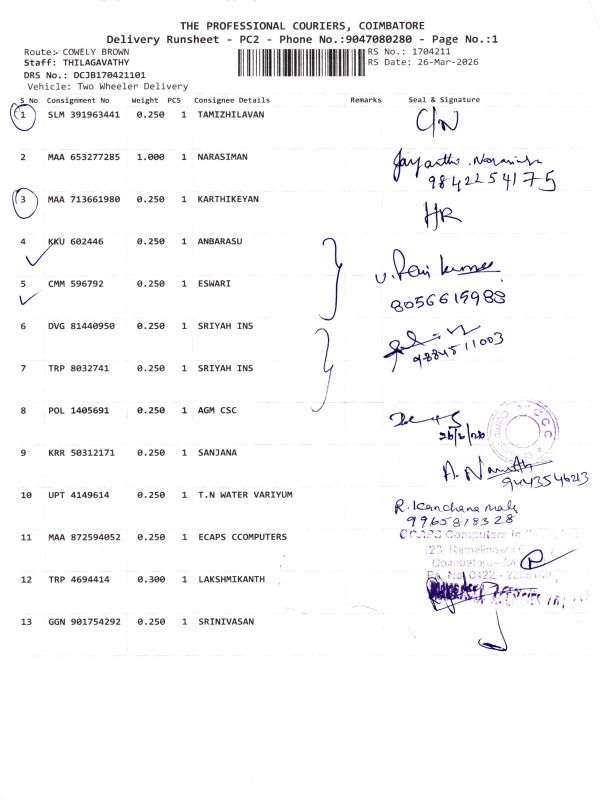 THE PROFESSIONAL COURIERS, COIMBATORE
Delivery Runsheet - PC2 - Phone No.:9047080280 - Page No.:1
Route:- COWELY BROWN
RS No.: 1704211
Staff: THILAGAVATHY
RS Date: 26-Mar-2026
DRS No.: DCJB170421101
Vehicle: Two Wheeler Delivery
S No Consignment No Weight PCS Consignee Details Remarks Seal & Signature
1 SLM 391963441 0.250 1 TAMIZHILAVAN C/N
2 MAA 653277285 1.000 1 NARASIMAN
9842254175
3 MAA 713661980 0.250 1 KARTHIKEYAN HR
4 KKU 602446 0.250 1 ANBARASU
5 CMM 596792 0.250 1 ESWARI
8056615988
6 DVG 81440950 0.250 1 SRIYAH INS
9884511003
7 TRP 8032741 0.250 1 SRIYAH INS
8 POL 1405691 0.250 1 AGM CSC
9 KRR 50312171 0.250 1 SANJANA
9443546213
10 UPT 4149614 0.250 1 T.N WATER VARIYUM R. Kanchana mala
9965818328
11 MAA 872594052 0.250 1 ECAPS CCOMPUTERS
12 TRP 4694414 0.300 1 LAKSHMIKANTH
13 GGN 901754292 0.250 1 SRINIVASAN